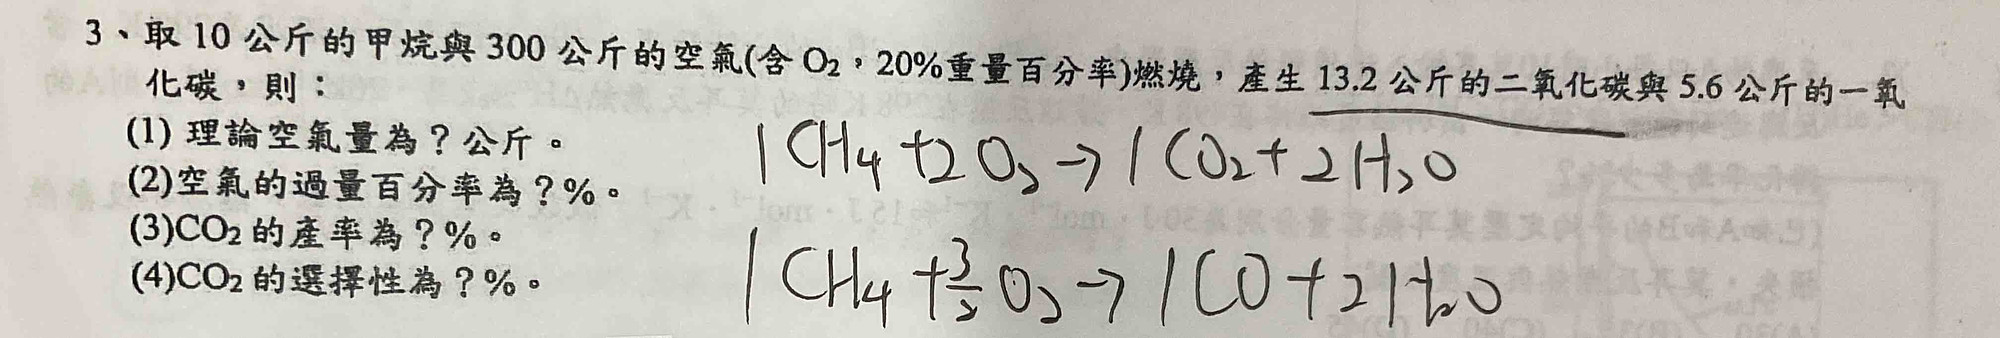 3、取 10 公斤的甲烷與 300 公斤的空氣(含 O₂，20%重量百分率)燃燒，產生 13.2 公斤的二氧化碳與 5.6 公斤的一氧
化碳，則：
(1) 理論空氣量為？公斤。
(2)空氣的過量百分率為？%。
(3)CO₂ 的產率為？%。
(4)CO₂ 的選擇性為？%。
1CH₄+2O₂→1CO₂+2H₂O
1CH₄+3/2O₂→1CO+2H₂O